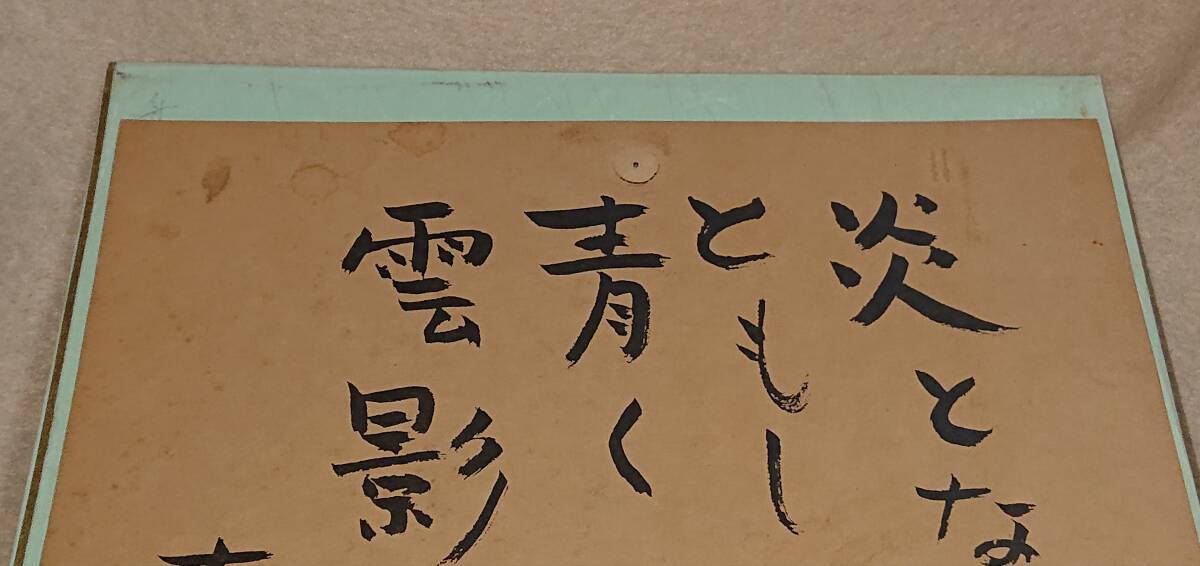 炎とな
ともし
青く
雲影